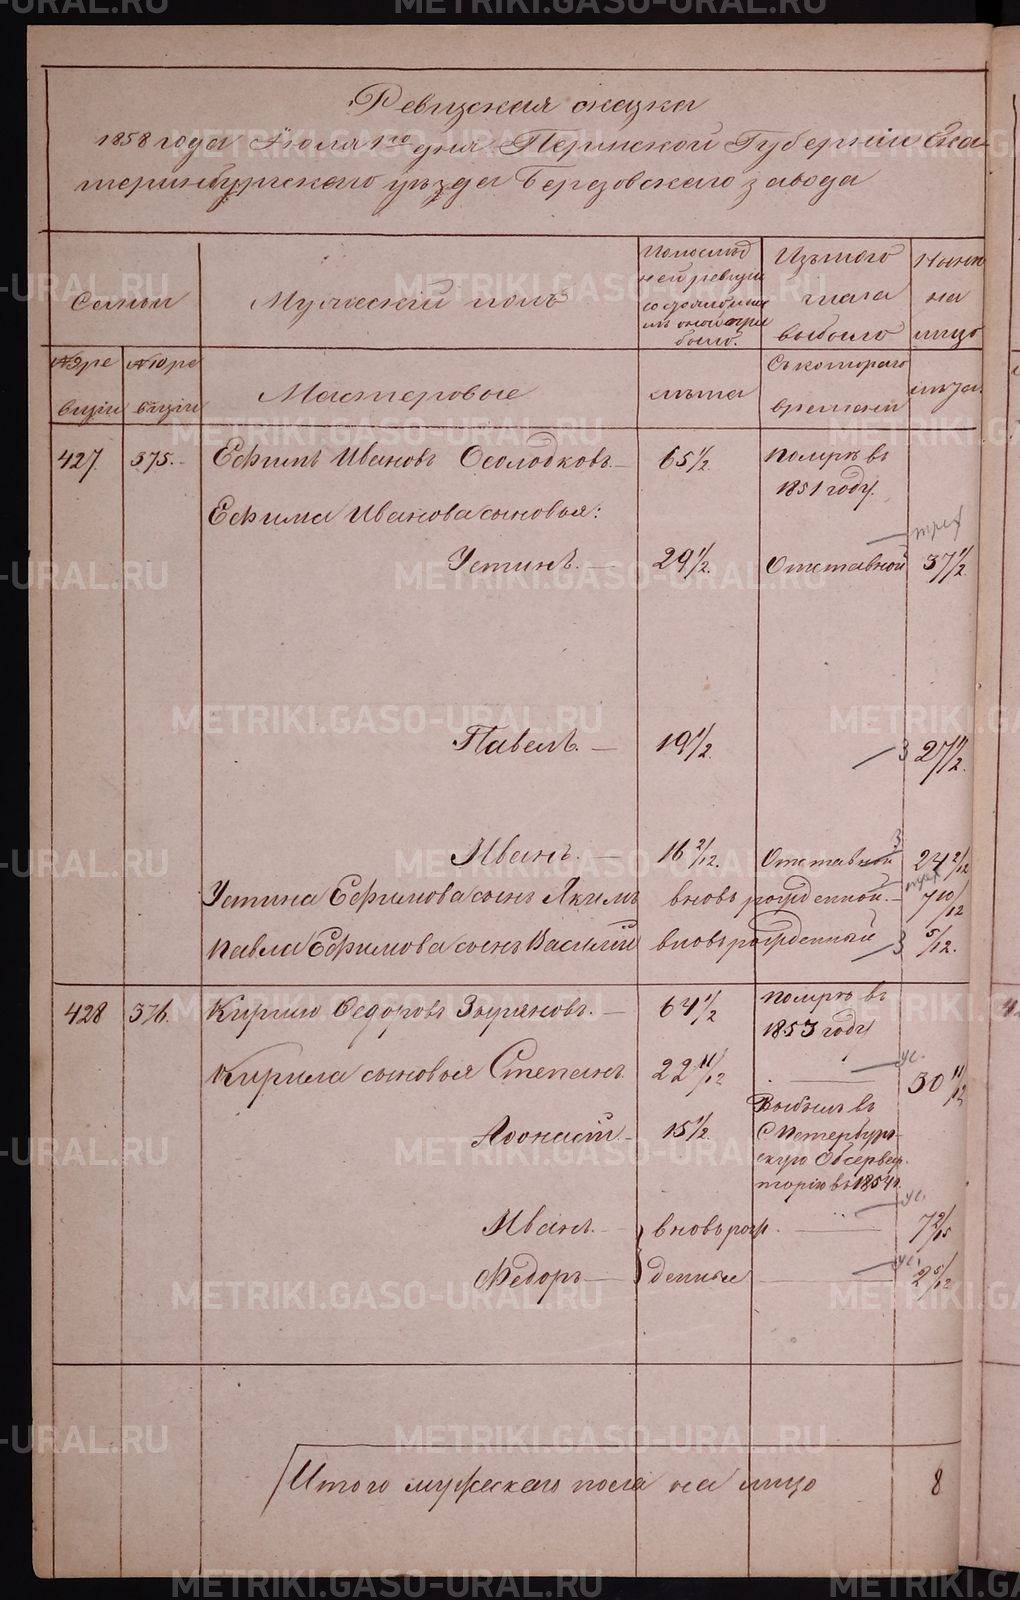 Ревизская сказка
1858 года Июля 1го дня Пермской Губерніи Ека-
теринбургскаго уѣзда Березовскаго завода
Семьи
Мужескій полъ
По послѣд
ней ревизіи
состояло и по-
слѣ оной при
было.
Изъ того
числа
выбыло
Нынѣ
на
лицо
№ 9 ре
визіи
№ 10 ре
визіи
Мастеровые
лѣта
Съ котораго
времени
лѣта.
427. 375. Ефимъ Ивановъ Осолодковъ 65 1/2 Помрѣ въ
1851 году.
Ефима Иванова сыновья:
Устинъ. 29 1/2. Отставной 37 1/2
Павелъ. 19 1/2. 3 27 1/2.
Иванъ. 16 2/12. Отставной 3 24 2/12
Устина Ефимова сынъ Якимъ вновь рожденной. 7 10/12
Павла Ефимова сынъ Василій вновь рожденный 3 5/12.
428 376. Кирило Федоровъ Зыряновъ. 64 1/2 Помрѣ въ
1853 году
Кирила сыновья Степанъ 22 11/12 ус. 30 11/12
Афонасій 15 1/2. Выбылъ въ
С Петербург-
скую Обсерва-
торію въ 1854 г.
Иванъ. вновь рож ус. 7
Федоръ денные ус. 2 5/12
Итого мужескаго пола на лицо 8
METRIKI.GASO-URAL.RU